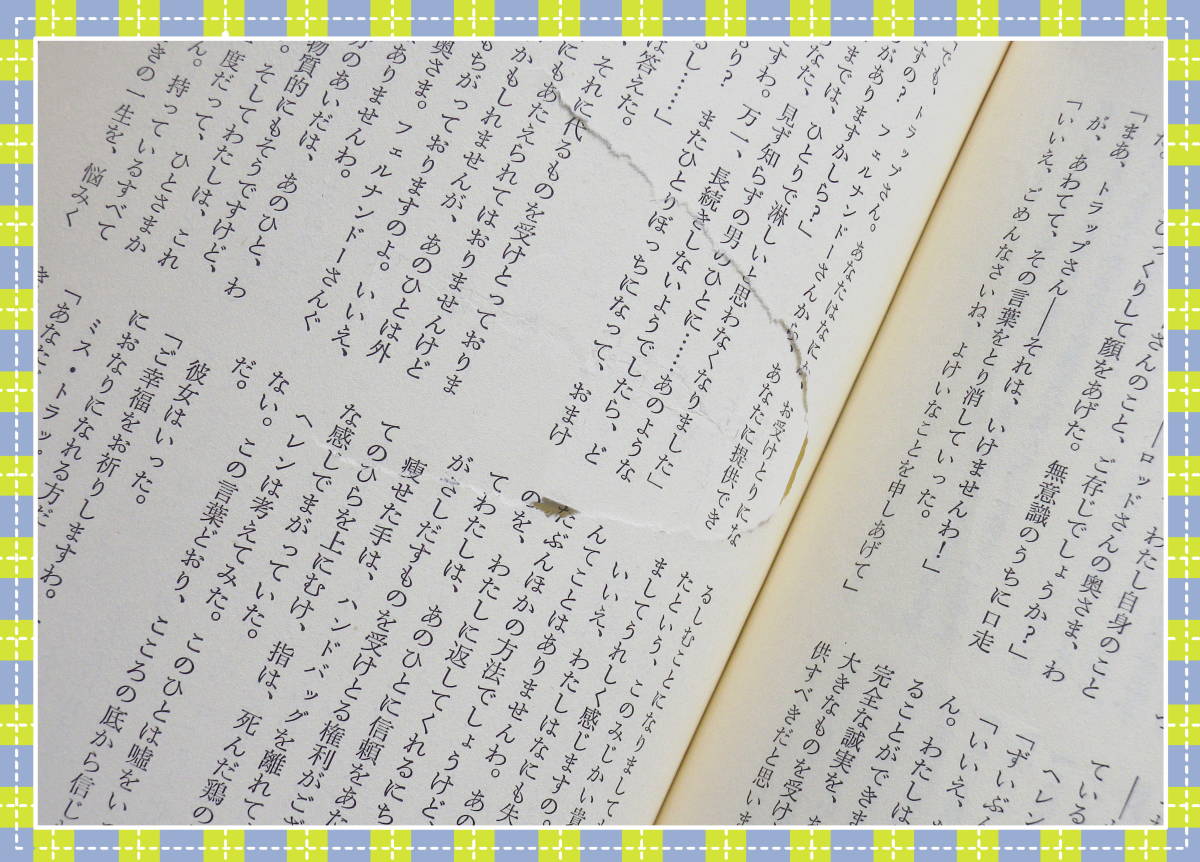 きんのこと、ご存じでしょうか?」
わたし自身のこと
「まあ、
びっくりして顔をあげた。無意識のうちに口走
が、
トラップさん――それは、いけませんわ!」
ロッドさんの奥さま、わ
あわてて、その言葉をとり消していった。
「いいえ、ごめんなさいね、よけいなことを申しあげて」
「でも、トラップさん。あなたはなに
お受けとりにな
ますの? フェルナンドーさんから、あなたに提供でき
がありますかしら?」
までは、ひとりで淋しいと思わなくなりました」
なた、見ず知らずの男のひとに……あのような
ですわ。万一、長続きしないようでしたら、ど
り? またひとりぼっちになって、おまけ
るし……」
は答えた。
、それに代るものを受けとっておりま
にもあたえられてはおりませんけど
かもしれませんが、あのひとは外
もちがっておりますのよ。いいえ、
奥さま。フェルナンドーさんぐ
ありませんわ。
方のあいだは、
物質的にもそうですけど、わ
。そしてわたしは、これ
度だって、ひとさまか
ん。持っているすべて
きの一生を、悩みく
ている
ヘレン
「ずいぶん
「いいえ、
ん。わたしは
ることができま
完全な誠実を、
大きなものを受け
供すべきだと思いま
るしむことになりまして
たという、このみじかい貴
ましてうれしく感じますの。
いいえ、わたしはなにも失
んてことはありませんわ。あの
たぶんほかの方法でしょうけど、
のを、わたしに返してくれるにち
てわたしは、あのひとに信頼をあた
がさしだすものを受けとる権利がござ
痩せた手は、ハンドバッグを離れて、
てのひらを上にむけ、指は、死んだ鶏の
な感じでまがっていた。
ヘレンは考えてみた。
ない。この言葉どおり、このひとは嘘をい
だ。
彼女はいった。こころの底から信じ
「ご幸福をお祈りしますわ。
におなりになれる方だ
ミス・トラップ
「あなた、トラップ